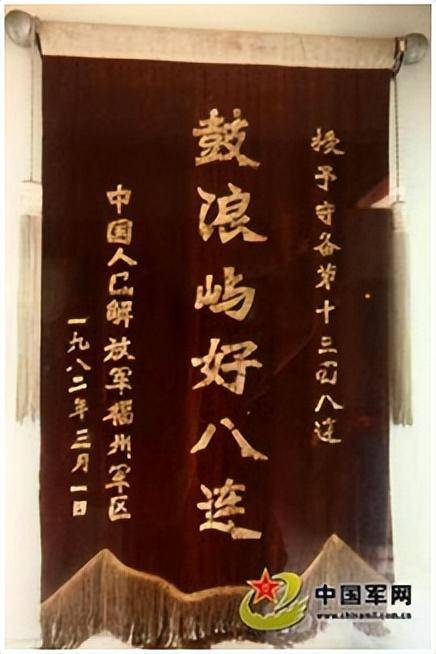 授予守备第十三团八连
鼓浪屿好八连
中国人民解放军福州军区
一九八二年三月一日
中国军网
www.chinamil.com.cn